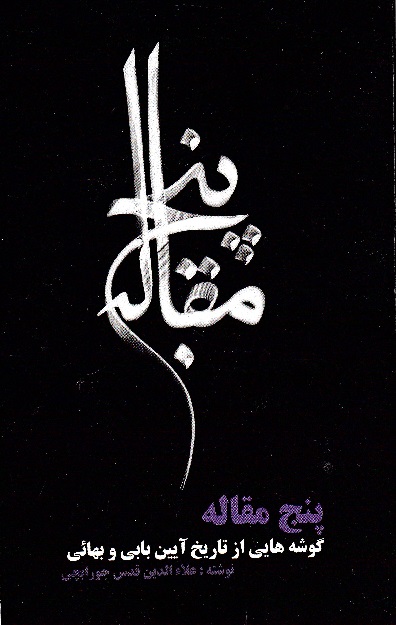 پنج
مقاله
پنج مقاله
گوشه هایی از تاریخ آیین بابی و بهائی
نوشته : علاء الدین قدس جورابچی